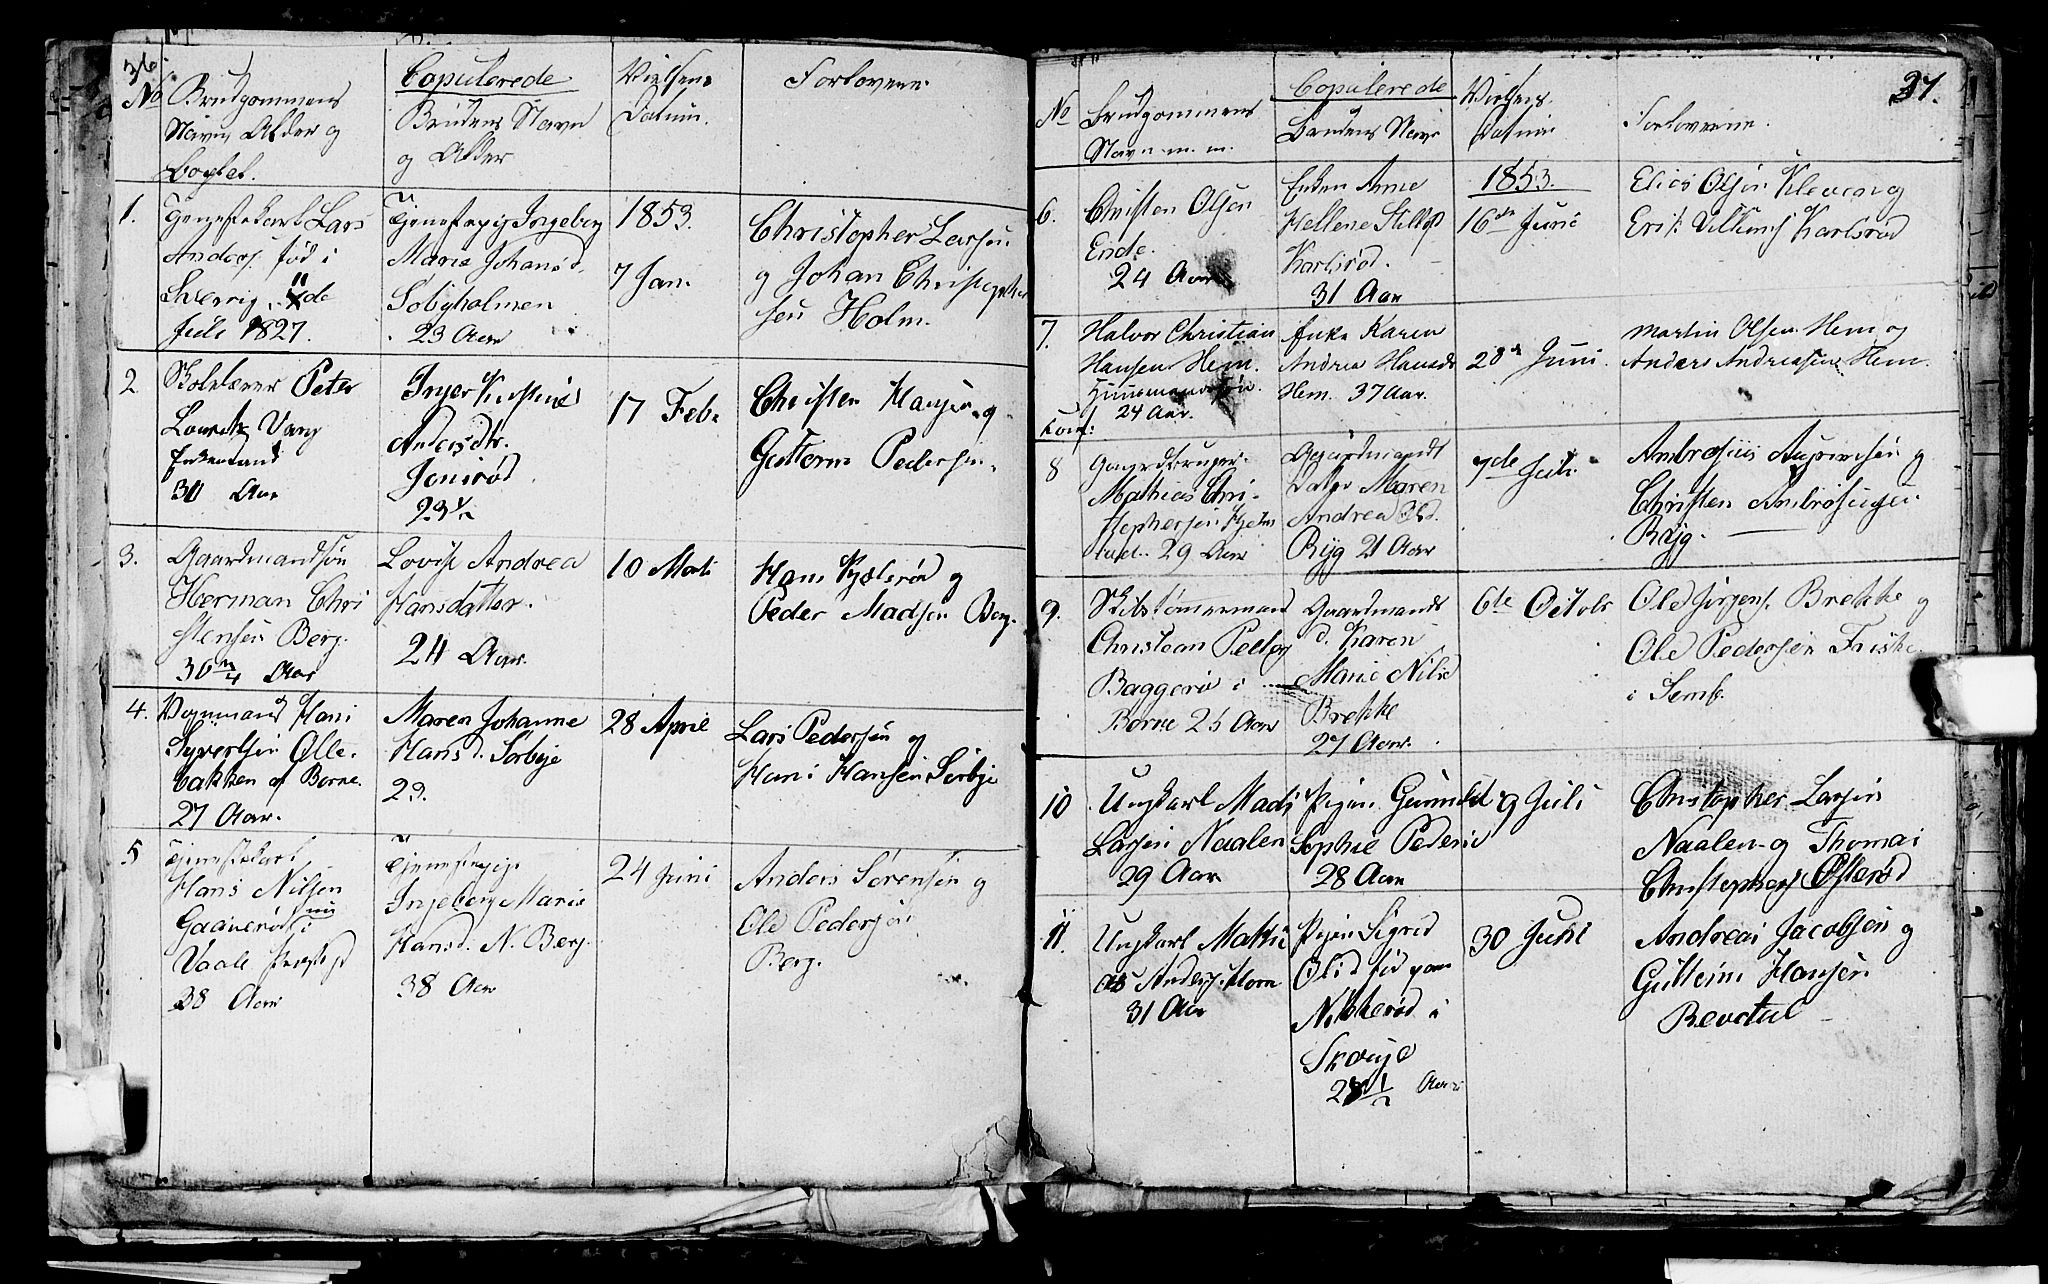 36.
No
Brudgommens
Navn, Alder og
Copulerede
Brudens Navn
og Alder
Vielsens
Datum.
Forlovere.
1.
Tjenestekarl Lars
Anders. fød i
Sverrig. 11 de
Juli 1827.
Tjenestepig Ingeborg
Marie Johansd.
Sobyholmen
23 Aar
1853.
7 Jan.
Christopher Larsen
og Johan Christopher
sen Holm.
2.
Skolelærer Peter
Lauritz Vang
Enkemand
30 Aar
Inger Kirstine
Andersdtr.
Jonsrød
23½
17 Febr
Christen Hansen og
Guttorm Pedersen.
3.
Gaardmandsøn
Herman Chri
stensen Berg.
30 Aar
Lovise Andrea
Hansdatter.
24 Aar.
10 Marts
Hans
og
Peder Madsen Berg.
4.
Hans
Syvertsen Olle-
bakken af Borre.
27 Aar.
Maren Johanne
Hansd. Sørbye
23.
28 April
Lars Pedersen og
Hans Hansen Sørbye
5
Tjenestekarl
Hans Nilsen
i
Vaale Præstegd
38 Aar
Tjenestepige
Ingeborg Marie
Hansd. N. Berg.
38 Aar
24 Juni
Anders Sørensen og
Ole Pedersen
Berg.
37.
No
Brudgommens
Navn m. m.
Copulerede
Brudens Navn
Vielsens
Datum
Forloverne.
6.
Christen Olsen
Ende.
24 Aar
Enken Anne
Hellene
Karlsrød.
31 Aar
1853.
16de Juni
Elias Olsen Klevan og
Erik Karlsrød
7.
Halvor Christian
Hansen Hem.
Huusmandssøn.
24 Aar.
Enke Karen
Andrea Hansdr
Hem. 37 Aar.
28de Juni.
Martin Olsen Hem og
Anders Andreasen Hem.
8
Gaardbruger
Mathias Chri-
stophersen
29 Aar
Gaardmands
Datter Maren
Andrea Olsd.
Ryg 21 Aar
7de Juli
Ambrosius og
Christen Ambrosiusen
Ryg.
9.
Skibstømmermand
Christian
i
Borre 25 Aar
Gaardmands
d. Karen
Marie Nilsd
Brekke
27 Aar.
6te Octobr
Ole Jørgens. Brekke og
Ole Pedersen Friske
i Semb.
10
Ungkarl Mads
Larsen Naalen
29 Aar
Pigen Gunnild
Sophie Pedersd
28 Aar
9 Juli
Christopher Larsen
Naalen og Thomas
Christophers Østerød
11.
Ungkarl Mathi
as Anders. Horn
31 Aar
Pigen Sigrid
Olsd fød paa
i
28 1/2 Aar
30 Juni
Andreas Jacobsen og
Guttorm Hansen
Revetal